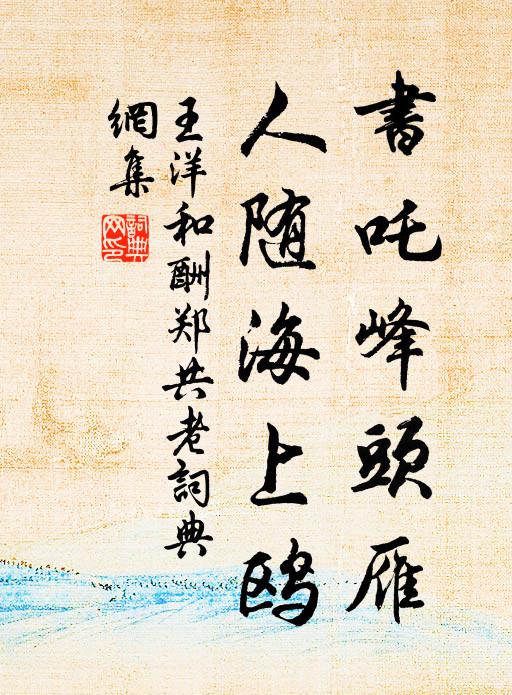 書吒峰頭雁
人随海上鸥
王洋和酬郑共老詞典
網集
詞典
网印